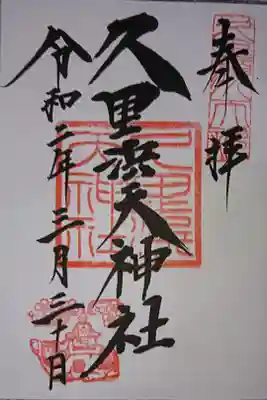 奉拝
久里浜天神社
令和二年三月三十日